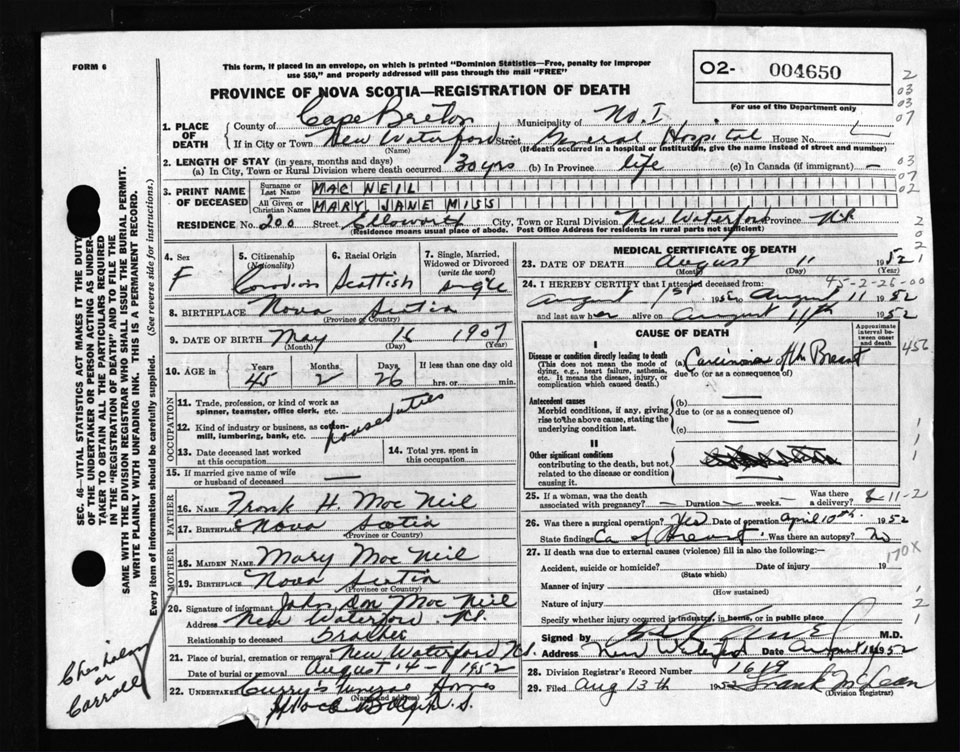 FORM 6
This form, if placed in an envelope, on which is printed "Dominion Statistics—Free, penalty for improper
use $50," and properly addressed will pass through the mail "FREE"
PROVINCE OF NOVA SCOTIA—REGISTRATION OF DEATH
02- 004650
For use of the Department only
2
03
03
07
03
07
02
2
0
2
1
1. PLACE OF DEATH
County of Cape Breton Municipality of No. I
If in City or Town New Waterford Street General Hospital House No.
(Name) (If death occurred in a hospital or institution, give the name instead of street and number)
2. LENGTH OF STAY (in years, months and days)
(a) In City, Town or Rural Division where death occurred 30 yrs (b) In Province life (c) In Canada (if immigrant) —
3. PRINT NAME OF DECEASED
Surname or Last Name MAC NEIL
All Given or Christian Names MARY JANE MISS
RESIDENCE No. 200 Street City, Town or Rural Division New Waterford Province N.S.
(Residence means usual place of abode. Post Office Address for residents in rural parts not sufficient)
4. Sex F
5. Citizenship (Nationality) Canadian
6. Racial Origin Scottish
7. Single, Married, Widowed or Divorced (write the word) single
8. BIRTHPLACE Nova Scotia
(Province or Country)
9. DATE OF BIRTH May 16 1907
(Month) (Day) (Year)
10. AGE in Years 45 Months 2 Days 26 If less than one day old hrs. or min.
OCCUPATION
11. Trade, profession, or kind of work as spinner, teamster, office clerk, etc.
12. Kind of industry or business, as cotton-mill, lumbering, bank, etc.
house duties
13. Date deceased last worked at this occupation
14. Total yrs. spent in this occupation
15. If married give name of wife or husband of deceased —
FATHER
16. NAME Frank H. Mac Neil
17. BIRTHPLACE Nova Scotia
(Province or Country)
MOTHER
18. MAIDEN NAME Mary Mac Neil
19. BIRTHPLACE Nova Scotia
(Province or Country)
20. Signature of informant John Mac Neil
Address New Waterford N.S.
Relationship to deceased Brother
21. Place of burial, cremation or removal New Waterford N.S.
Date of burial or removal August 14 - 1952
22. UNDERTAKER Curry's Funeral Homes
(Name and address)
Glace Bay N.S.
MEDICAL CERTIFICATE OF DEATH
23. DATE OF DEATH August 11 1952
(Month) (Day) (Year)
45-2-26-00
24. I HEREBY CERTIFY that I attended deceased from:
August 1st 1952 to August 11 1952
and last saw her alive on August 11th 1952
CAUSE OF DEATH
Approximate interval between onset and death
I
Disease or condition directly leading to death
(This does not mean the mode of dying, e.g., heart failure, asthenia, etc. It means the disease, injury, or complication which caused death.)
(a) Carcinoma of the Breast
due to (or as a consequence of)
Antecedent causes
Morbid conditions, if any, giving rise to the above cause, stating the underlying condition last.
(b) —
due to (or as a consequence of)
(c) —
II
Other significant conditions
contributing to the death, but not related to the disease or condition causing it.
456
1
1
1
25. If a woman, was the death associated with pregnancy? — Duration — weeks. Was there a delivery?
8-11-2
26. Was there a surgical operation? Yes Date of operation April 10th 1952
State findings Ca of Breast Was there an autopsy? No
27. If death was due to external causes (violence) fill in also the following:—
Accident, suicide or homicide? Date of injury 19
(State which)
170X
Manner of injury
(How sustained)
Nature of injury
Specify whether injury occurred in industry, in home, or in public place
1
2
1
Signed by M.D.
Address New Waterford Date August 1952
28. Division Registrar's Record Number 1619
29. Filed Aug 13th 1952 Frank McLean
(Division Registrar)
SEC. 46—VITAL STATISTICS ACT MAKES IT THE DUTY
OF THE UNDERTAKER OR PERSON ACTING AS UNDER-
TAKER TO OBTAIN ALL THE PARTICULARS REQUIRED
IN THE "REGISTRATION OF DEATH" AND TO FILE THE
SAME WITH THE DIVISION REGISTRAR WHO SHALL ISSUE THE BURIAL PERMIT.
WRITE PLAINLY WITH UNFADING INK. THIS IS A PERMANENT RECORD.
Every item of information should be carefully supplied. (See reverse side for instructions.)
or
Carroll